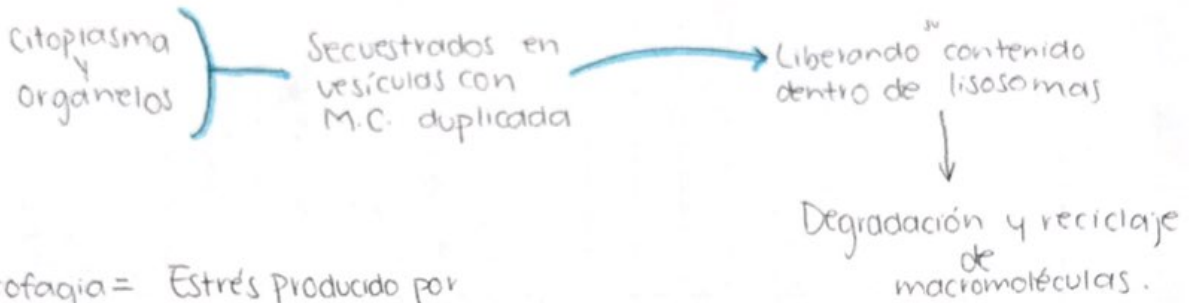 Citoplasma
y
Organelos
Secuestrados en
vesículas con
M.C. duplicada
Liberando su contenido
dentro de lisosomas
Degradación y reciclaje
de
macromoléculas.
ofagia = Estrés producido por